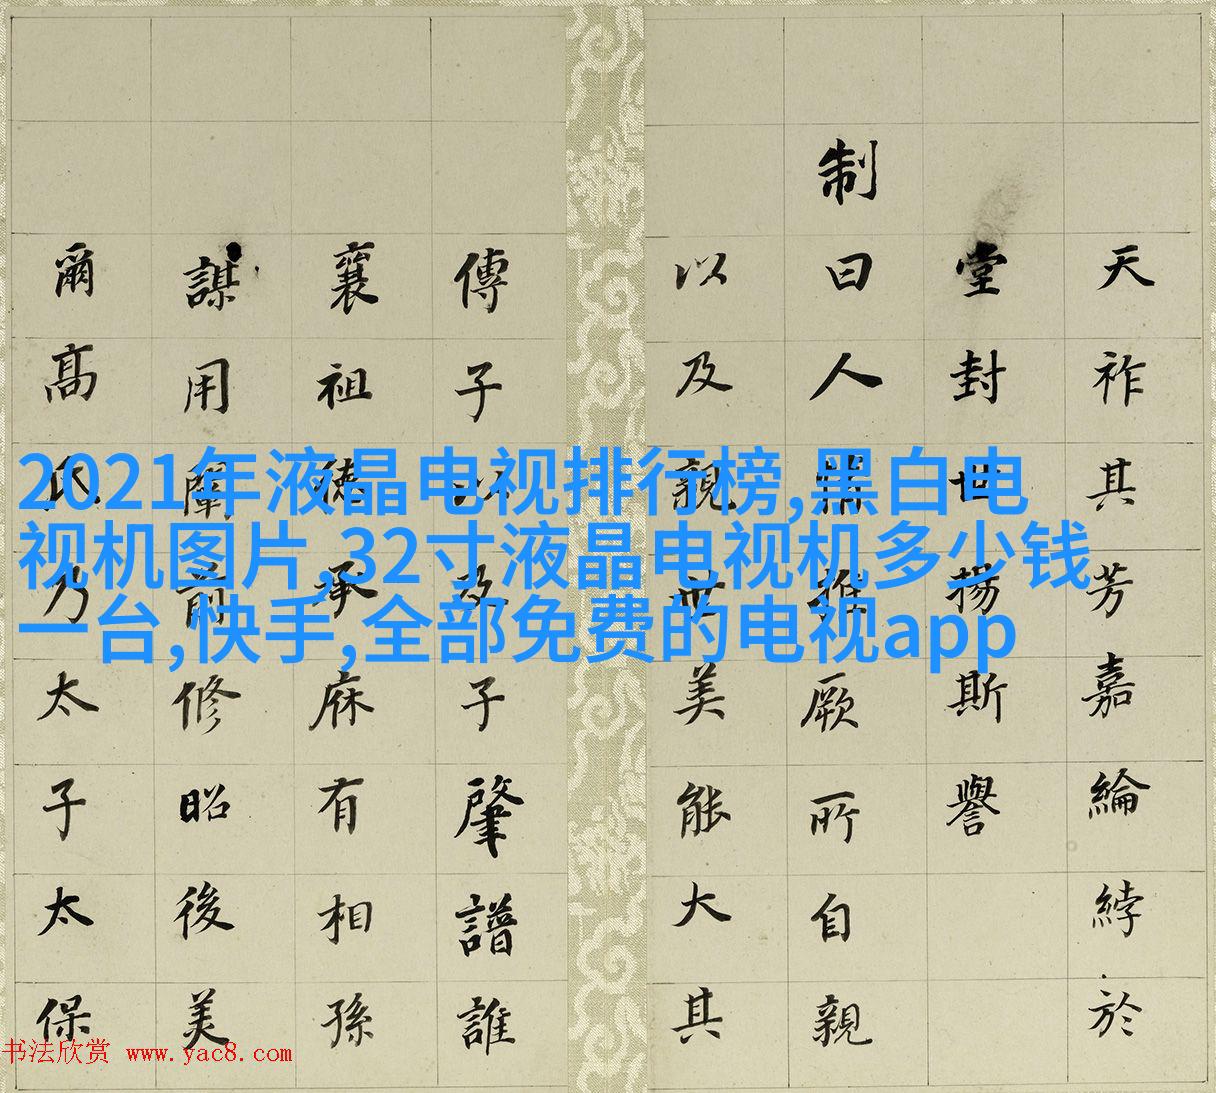 天祚其芳嘉綸綍於
堂封世揚斯譽
制曰人推厥所自親
以及親世美能大其
傳子以及子肇譜誰
襄祖德承庥有相孫
謀用闡前修昭後美
爾高氏乃太子太保
2021年液晶电视排行榜,黑白电
视机图片,32寸液晶电视机多少钱
一台,快手,全部免费的电视app
书法欣赏 www.yac8.com